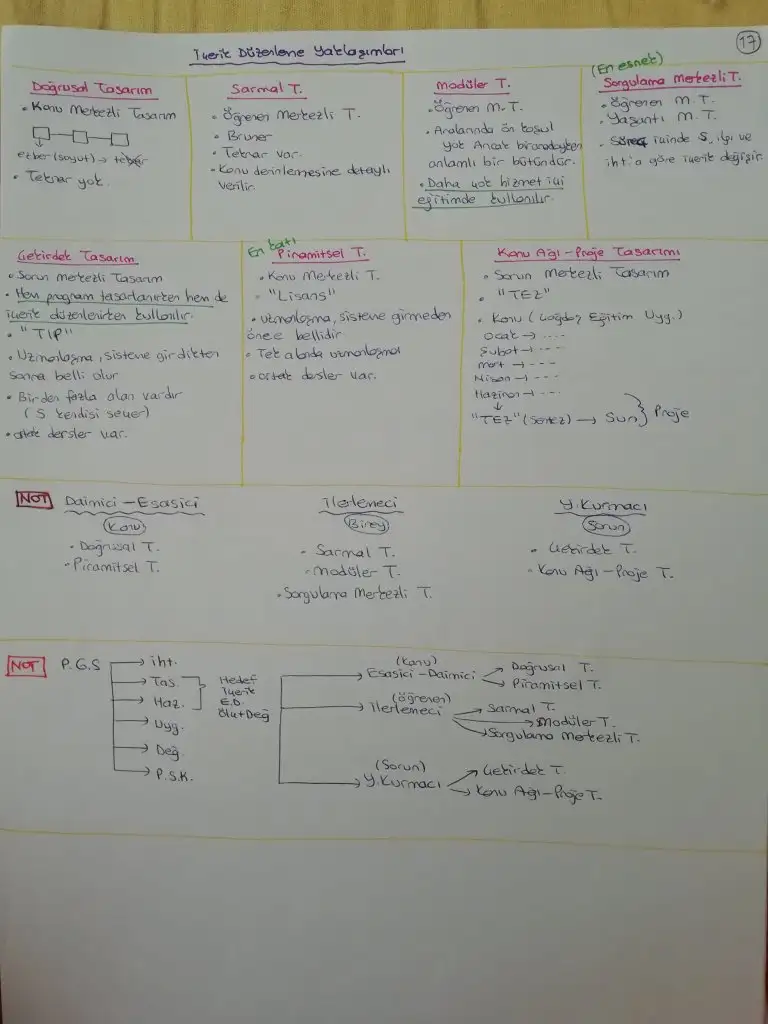 17
İçerik Düzenleme Yaklaşımları
Doğrusal Tasarım
• Konu Merkezli Tasarım
ezber (soyut) → tekrar
• Tekrar yok.
Sarmal T.
• Öğrenen Merkezli T.
• Bruner
• Tekrar var.
• Konu derinlemesine detaylı
verilir.
Modüler T.
• Öğrenen M.T.
• Aralarında ön koşul
yok Ancak biraradayken
anlamlı bir bütündür.
• Daha çok hizmet içi
eğitimde kullanılır.
(En esnek)
Sorgulama Merkezli T.
• Öğrenen M.T.
• Yaşantı M.T.
• Süreç içinde S, ilgi ve
iht.'a göre içerik değişir.
Çekirdek Tasarım
• Sorun Merkezli Tasarım
• Hem program tasarlanırken hem de
içerik düzenlenirken kullanılır.
• "TIP"
• Uzmanlaşma, sisteme girdikten
sonra belli olur
• Birden fazla alan vardır
(S kendisi seçer)
• ortak dersler var.
En katı
Piramitsel T.
• Konu Merkezli T.
• "Lisans"
• Uzmanlaşma, sisteme girmeden
önce bellidir
• Tek alanda uzmanlaşma
• ortak dersler var.
Konu Ağı - Proje Tasarımı
• Sorun Merkezli Tasarım
• "TEZ"
• Konu (Çağdaş Eğitim Uyg.)
Ocak → ....
Şubat → ---
Mart → ---
Nisan → ---
Haziran → ---
"TEZ" (Sentez) → Sun } Proje
NOT
Daimici - Esasici
Konu
• Doğrusal T.
• Piramitsel T.
İlerlemeci
Birey
• Sarmal T.
• Modüler T.
• Sorgulama Merkezli T.
Y.Kurmacı
Sorun
• Çekirdek T.
• Konu Ağı - Proje T.
NOT
P.G.S
→ iht.
→ Tas.
→ Haz.
→ Uyg.
→ Değ.
→ P.S.K.
Hedef
İçerik
E.D.
Ölç+Değ
(Konu)
→ Esasici - Daimici
→ Doğrusal T.
→ Piramitsel T.
(Öğrenen)
→ İlerlemeci
→ Sarmal T.
→ Modüler T.
→ Sorgulama Merkezli T.
(Sorun)
→ Y.Kurmacı
→ Çekirdek T.
→ Konu Ağı - Proje T.